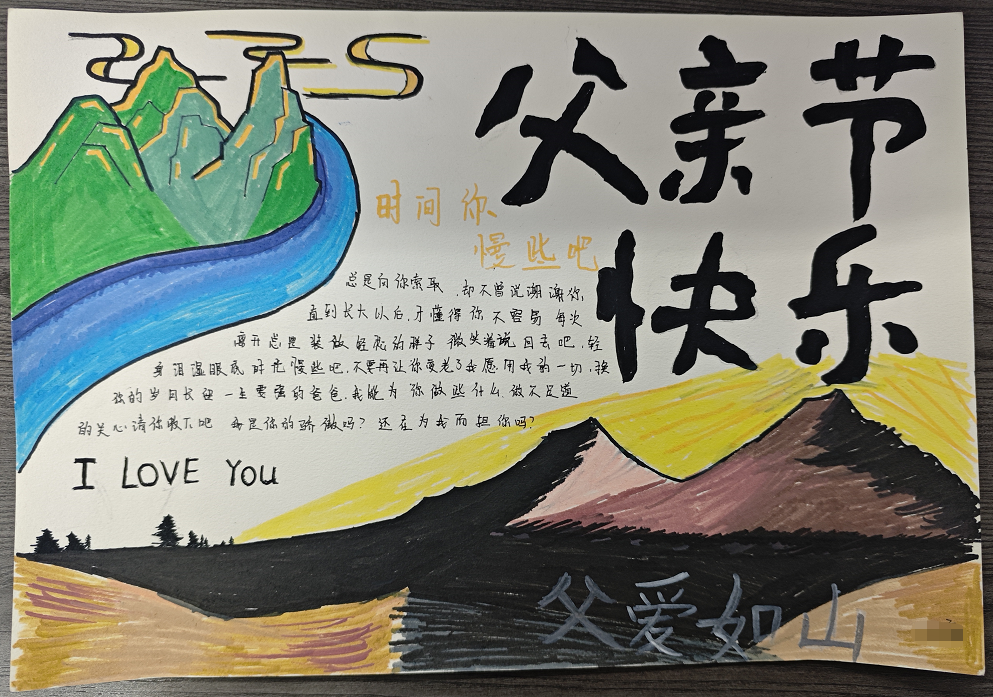 父亲节
快乐
时间你
慢些吧
总是向你索取,却不曾说谢谢你
直到长大以后,才懂得你不容易 每次
离开总是装做轻松的样子 微笑着说回去吧,轻
身泪湿眼底 时光慢些吧,不要再让你变老了我愿用我的一切,换
你的岁月长留 一生要强的爸爸,我能为你做些什么 微不足道
的关心请你收下吧 我是你的骄傲吗?还在为我而担你吗?
I LOVE YOU
父爱如山